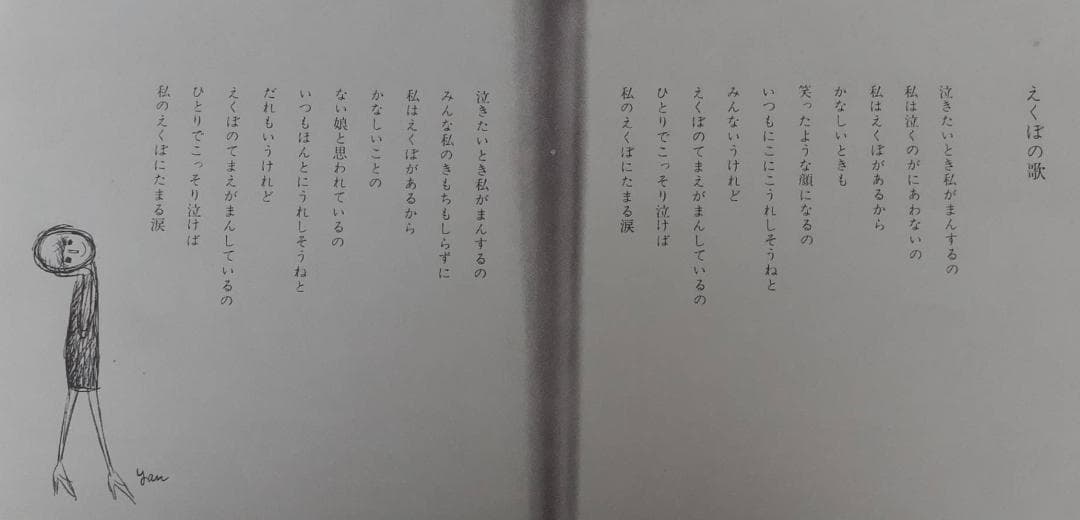 えくぼの歌
泣きたいとき私がまんするの
私は泣くのがにあわないの
私はえくぼがあるから
かなしいときも
笑ったような顔になるの
いつもにこにこうれしそうねと
みんないうけれど
えくぼのてまえがまんしているの
ひとりでこっそり泣けば
私のえくぼにたまる涙
泣きたいとき私がまんするの
みんな私のきもちもしらずに
私はえくぼがあるから
かなしいことの
ない娘と思われているの
いつもほんとにうれしそうねと
だれもいうけれど
えくぼのてまえがまんしているの
ひとりでこっそり泣けば
私のえくぼにたまる涙
Yan